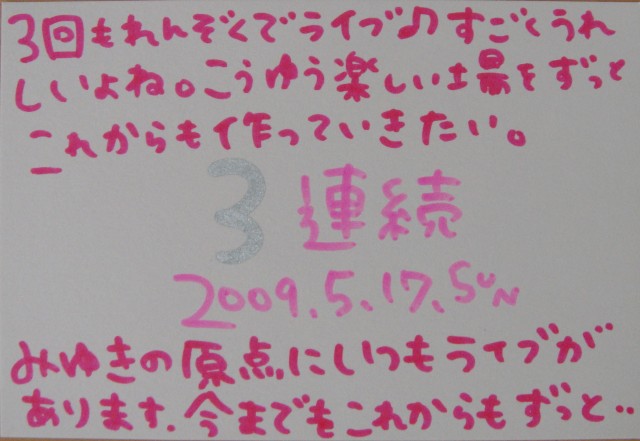 3回もれんぞくでライブ♫すごくうれ
しいよね。こうゆう楽しい場をずっと
これからも作っていきたい。
3連続
2009.5.17.SUN
みゆきの原点にいつもライブが
あります.今までもこれからもずっと‥